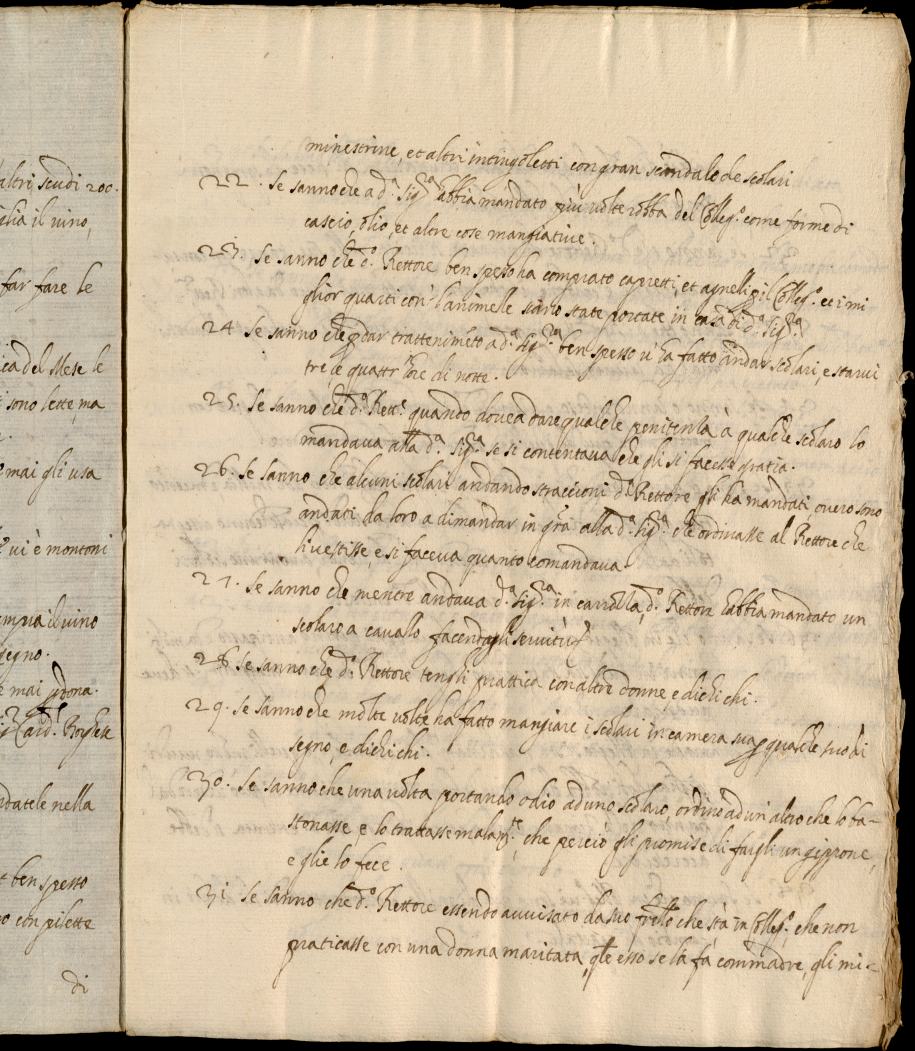 altri scudi 200.
il vino,
far fare le
del Mese le
sono lette, ma
mai gli usa
vi è montoni
il vino
segno.
mai
Card. Borghese
nella
ben spesso
con pilette
di
minestrine, et altri intingoletti con gran scandalo de scolari
22. Se sanno che a d.ª Sig.ra habbia mandato più volte robba del Colleg.º come forme di
cascio, olio, et altre cose mangiative.
23. Se sanno che d.º Rettore ben spesso ha comprato capretti, et agnelli p il Colleg.º et i mi
glior quarti con l'animelle siano state portate in casa di d.ª Sig.ra
24 Se sanno che p dar trattenimẽto a d.ª Sig.ra ben spesso vi ha fatto andar scolari, e starvi
tre, e quattr' hore di notte.
25. Se sanno che d.º Rett.e quando dovea dare qualche penitenza à qualche scolaro lo
mandava alla d.ª Sig.ra se si contentava che gli si facesse gratia.
26. Se sanno che alcuni scolari andando straccioni d.º Rettore gli ha mandati, overo sono
andati da loro a dimandar in grã alla d.ª Sig.ra che ordinasse al Rettore che
li vestisse, e si faceva quanto comandava.
27. Se sanno che mentre andava d.ª Sig.ra in carrozza, d.º Rettore habbia mandato un
scolaro a cavallo facendogli servitù
28. Se sanno che d.º Rettore tenghi prattica con altre donne, e di chi chi.
29. Se sanno che molte volte ha fatto mangiare i scolari in camera sua p qualche suo di
segno, e di chi chi.
30. Se sanno che una volta portando odio ad uno scolaro, ordinò ad un' altro che lo ba-
stonasse, e lo trattasse malam.te, che perciò gli promise di fargli un gippone,
e glie lo fece.
31. Se sanno che d.º Rettore essendo avvisato da suo frãllo che stà in Colleg.º, che non
praticasse con una donna maritata, qle esso se la fà commadre, gli mi-